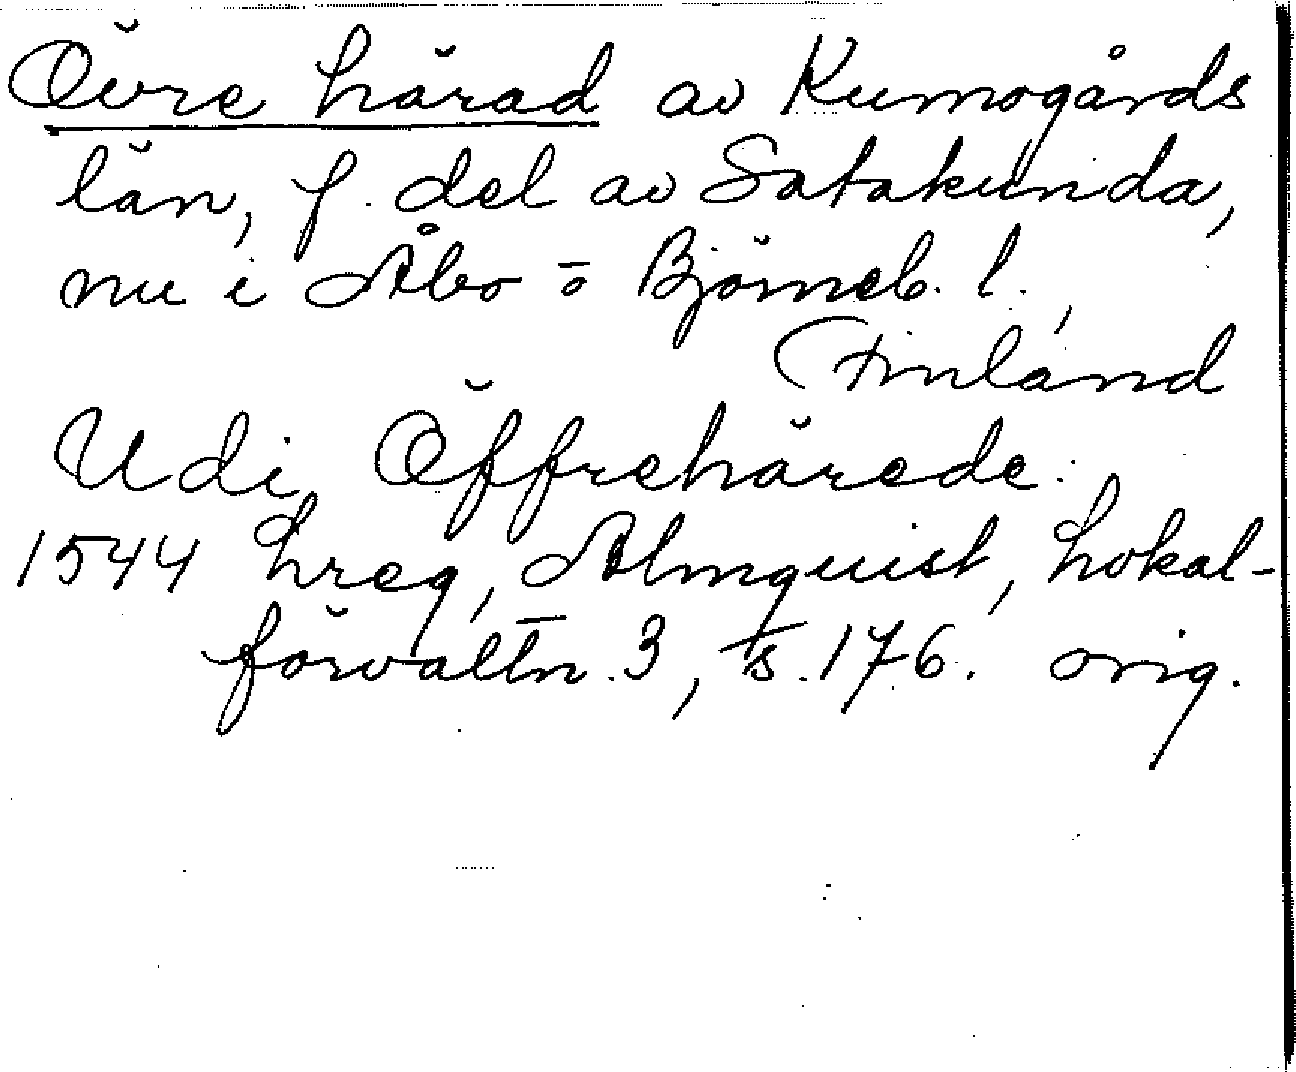 Övre härad av Kumogårds
län, f. del av Satakunda,
nu i Åbo o Björneb. l.,
Finland
Udi Öffrehärede.
1544 hreg, Almquist, Lokal-
förvaltn. 3, s. 176. orig.